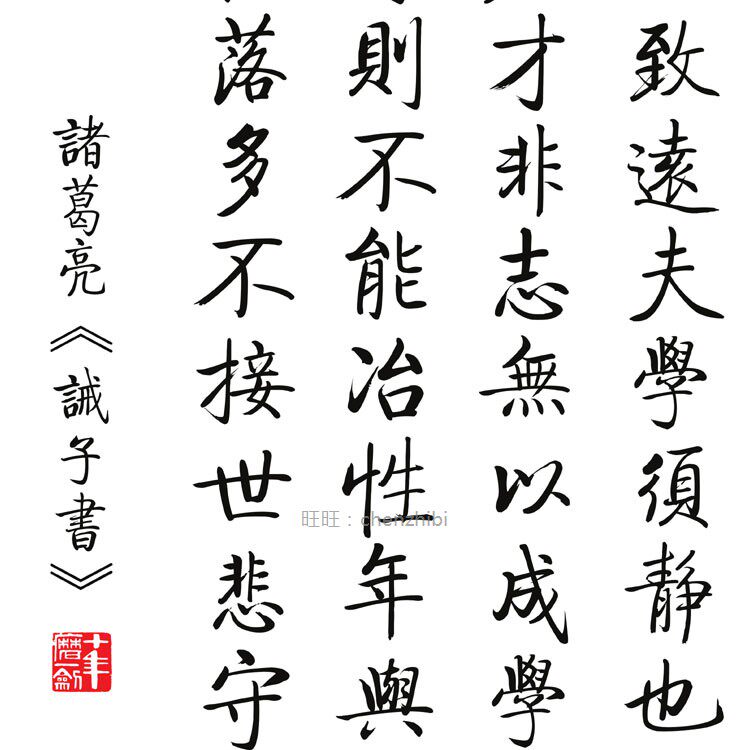 致遠夫學須靜也
才非志無以成學
則不能冶性年與
落多不接世悲守
諸葛亮《誡子書》
十年磨一劍
旺旺：chenzhibi